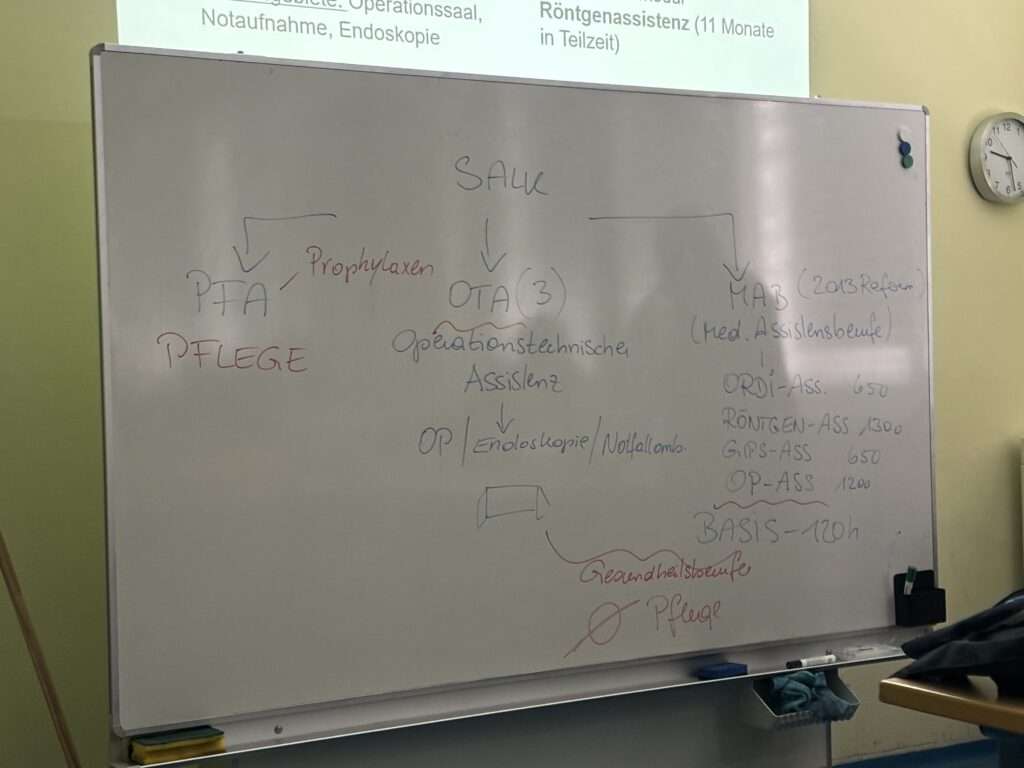 Operationssaal,
Notaufnahme, Endoskopie
Röntgenassistenz (11 Monate
in Teilzeit)
SALK
PFA
Prophylaxen
PFLEGE
OTA (3)
Operationstechnische
Assistenz
OP / Endoskopie / Notfallamb.
MAB (2013 Reform)
(Med. Assistensberufe)
ORDI-ASS. 650
RÖNTGEN-ASS 1300
GIPS-ASS 650
OP-ASS 1200
BASIS - 120h
Gesundheitsberufe
Ø Pflege
12
11
10
7
6
5